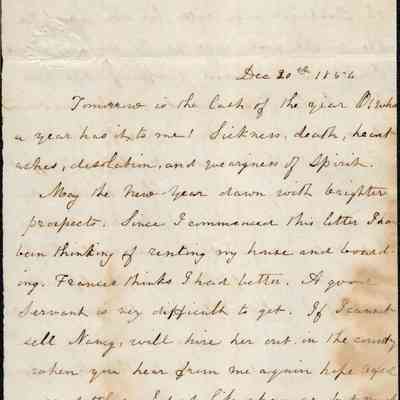 Dec 20th 1856
Tomorrow is the last of the year Oh what
a year has it to me! Sickness, death, heart
aches, desolation, and wearyness of Spirit.
May the New Year dawn with brighter
prospects. Since I commenced this letter I have
been thinking of renting my house and board-
ing. Frances thinks I had better. A good
Servant is very difficult to get. If I cannot
sell Nancy, will hire her out in the country
when you hear from me again hope